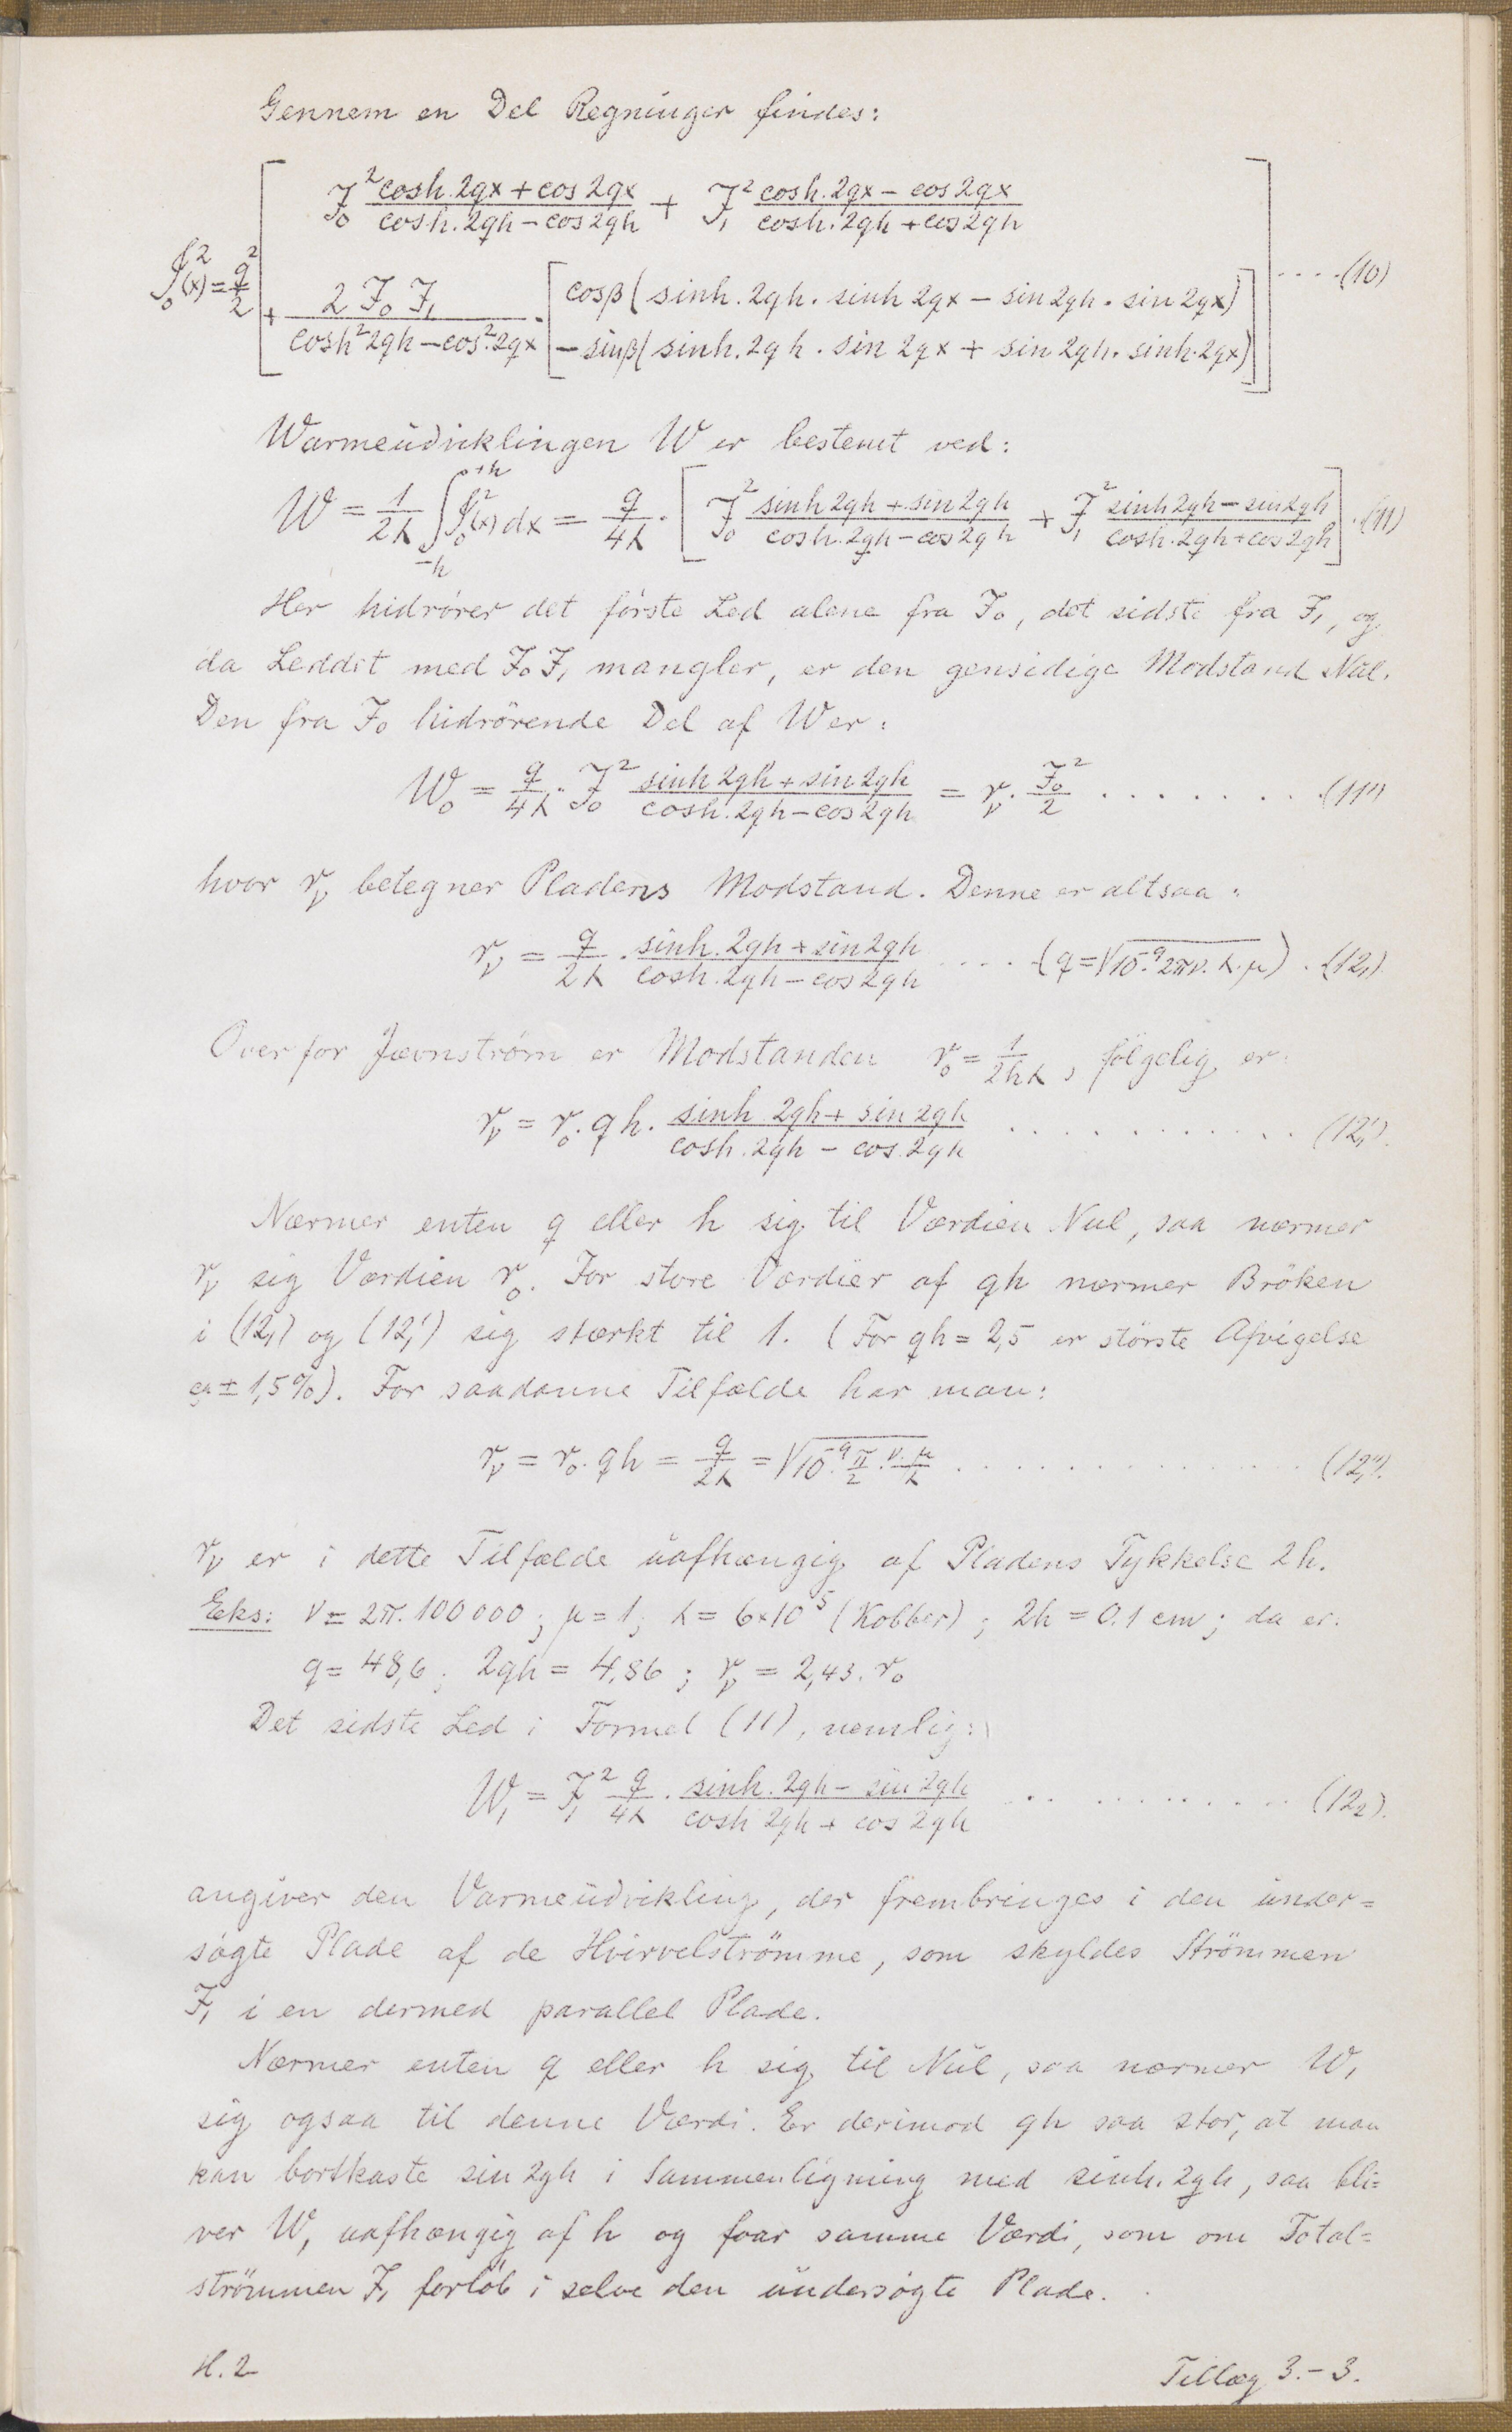 Gennem en Del Regninger findes:
f₀²(x) = q²/2 [ J₀² (cosh.2qx + cos2qx)/(cosh.2qh − cos2qh) + J₁² (cosh.2qx − cos2qx)/(cosh.2qh + cos2qh)
+ 2J₀J₁/(cosh²2qh − cos².2qx) · [ cosβ(sinh.2qh. sinh2qx − sin2qh. sin2qx)
− sinβ(sinh.2qh. sin2qx + sin2qh. sinh.2qx) ] ] .....(10)
Warmeudviklingen W er bestemt ved:
W = 1/2λ ∫₋ₕ⁺ʰ f₀²(x) dx = q/4λ · [ J₀² (sinh2qh + sin2qh)/(cosh.2qh − cos2qh) + J₁² (sinh2qh − sin2qh)/(cosh.2qh + cos2qh) ] .(11)
Her hidrører det første Led alene fra J₀, det sidste fra J₁, og
da Leddet med J₀J₁ mangler, er den gensidige Modstand Nul.
Den fra J₀ hidrörende Del af W er:
W₀ = q/4λ · J₀² (sinh2qh + sin2qh)/(cosh.2qh − cos2qh) = rᵥ · J₀²/2 ........(11')
hvor rᵥ betegner Pladens Modstand. Denne er altsaa:
rᵥ = q/2λ · (sinh.2qh + sin2qh)/(cosh.2qh − cos2qh) .... (q = √10⁻⁹.2πν.λ.μ) . (12₁).
Over for Jævnström er Modstanden r₀ = 1/2hλ, følgelig er:
rᵥ = r₀. qh. (sinh 2qh + sin 2qh)/(cosh.2qh − cos.2qh) ........... (12₁').
Nærmer enten q eller h sig til Værdien Nul, saa nærmer
rᵥ sig Værdien r₀. For store Værdier af qh nærmer Bröken
i (12₁) og (12₁') sig stærkt til 1. (For qh = 2,5 er störste Afvigelse
ca ± 1,5%). For saadanne Tilfælde har man:
rᵥ = r₀. qh = q/2λ = √10⁻⁹. π/2 . ν.μ/λ ............. (12₁'').
rᵥ er i dette Tilfælde uafhængig af Pladens Tykkelse 2h.
Eks: ν = 2π.100000; μ = 1; λ = 6×10⁵ (Kobber); 2h = 0.1 cm; da er:
q = 48,6; 2qh = 4,86; rᵥ = 2,43. r₀
Det sidste Led i Formel (11), nemlig:
W₁ = J₁² q/4λ · (sinh.2qh − sin 2qh)/(cosh 2qh + cos 2qh) ........... (12₂).
angiver den Varmeudvikling, der frembringes i den under=
søgte Plade af de Hvirvelströmme, som skyldes Strömmen
J₁ i en dermed parallel Plade.
Nærmer enten q eller h sig til Nul, saa nærmer W₁
sig ogsaa til denne Værdi. Er derimod qh saa stor, at man
kan bortkaste sin 2qh i Sammenligning med sinh.2qh, saa bli=
ver W₁ uafhængig af h og faar samme Værdi, som om Total=
strömmen J₁ forlöb i selve den undersøgte Plade.
H.2
Tillæg 3.–3.